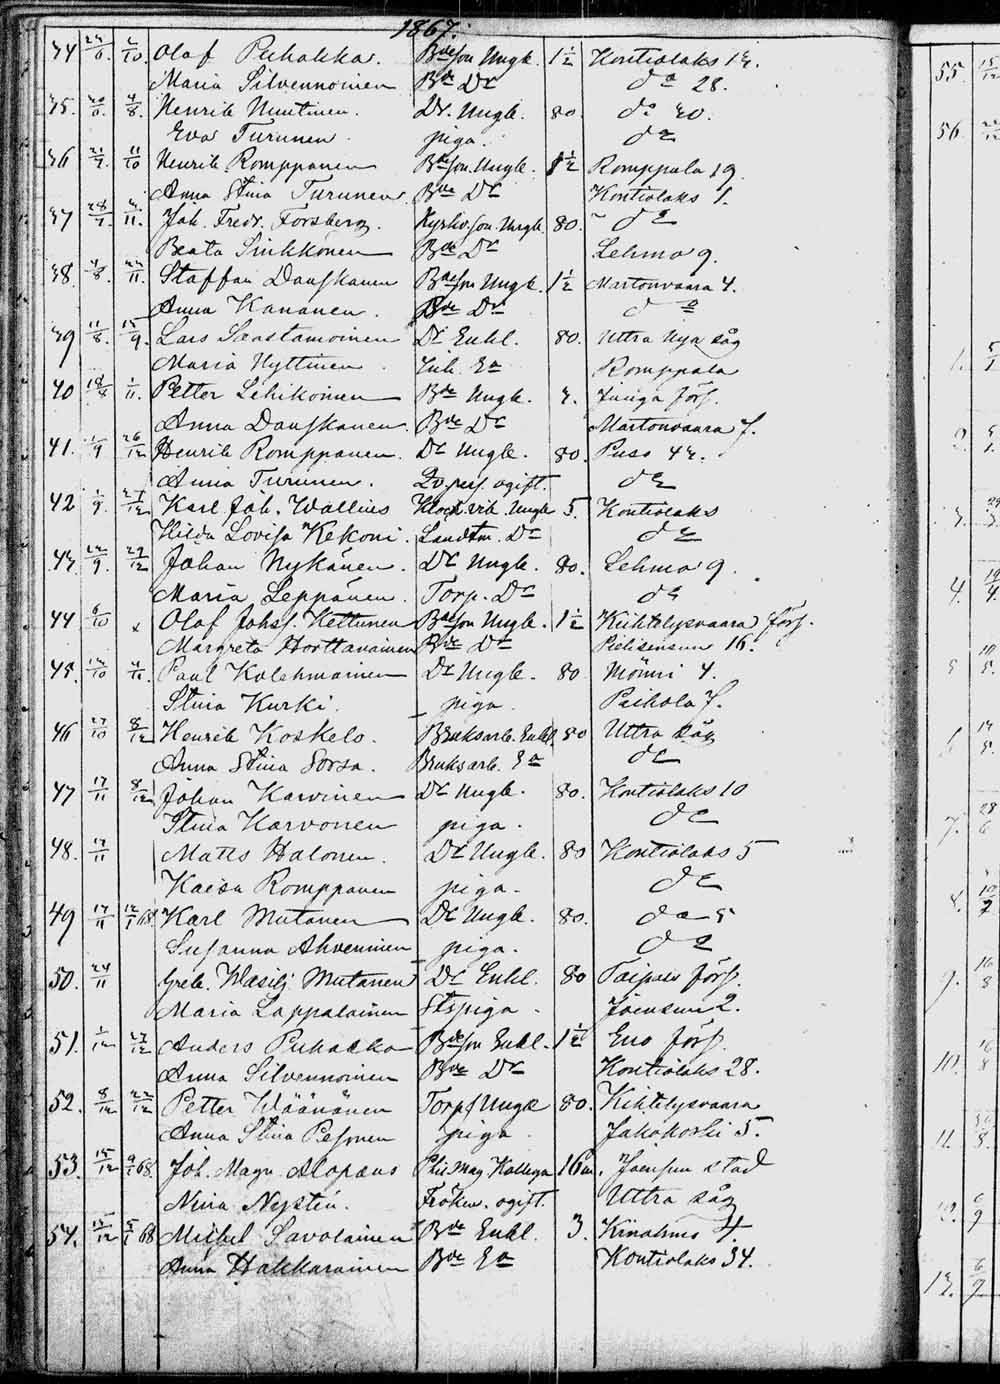 1867.
34 2/10. Olof Puhakka. Bdeson Ungk. 1 1/2 Kontiolaks 12.
Maria Silvennoinen Bde Dr do 28.
35. 4/8. Henrik Nuutinen. Dr. Ungk. 80. do 20.
Eva Turunen piga. do
36 11/10 Henrik Romppanen Bdeson. Ungk. 1 1/2 Romppala 19.
Anna Stina Turunen. Bde Dr Kontiolaks 1.
37 28/7. 11. Joh. Fredr. Forsberg. Ungk. 80. do
Beata Sinkkonen Bde Dr Lehmo 9.
38. 4/8. 11. Staffan Danskanen Bdeson Ungk. 1 1/2 Martonvaara 4.
Anna Kananen. Bde Dr do
39 11/8. 15/9. Lars Saastamoinen Dr Enkl. 80. Uttra Nya såg
Maria Hyttinen Enk. Romppala
40 18/8 1/11. Petter Lehikoinen Bde Ungk. 3. Juuga förs.
Anna Danskanen. Bde Dr Martonvaara 7.
41. 1/9 26/12 Henrik Romppanen. Dr Ungk. 80. Puso 42.
Anna Turunen. Qvpers. ogift. do
42 1/9. 27/12 Karl Joh. Wallius Ungk 5. Kontiolaks
Hilda Lovisa Kekoni. Landtm. Dr do
43 22/9. 29/12 Johan Nykänen. Dr Ungk. 80. Lehmo 9.
Maria Leppänen. Torp. Dr do
44 6/10 x Olof Johss. Kettunen Bdeson Ungk. 1 1/2 Kihtelysvaara förs.
Margreta Horttanainen Bde Dr Pielisensuu 16.
45. 13/10 4/11. Paul Kolehmainen Dr Ungk. 80 Mönni 4.
Stina Kurki. piga. Paihola 7.
46 27/10 8/12 Henrik Koskelo. Bruksarb. Enkl. 80 Uttra såg
Anna Stina Sorsa. Bruksarb. Ea do
47 17/11 8/12 Johan Karvinen Dr Ungk. 80. Kontiolaks 10
Stina Karvonen piga. do
48. 17/11 Matts Halonen. Dr Ungk. 80 Kontiolaks 5
Kaisa Romppanen piga. do
49 17/11 12/1 68 Karl Mutanen Dr Ungk. 80. do 5
Susanna Ahveninen piga. do
50. 24/11 Grek. Wasilj Mutanen Dr Enkl. 80 Taipale förs.
Maria Lappalainen Stspiga. Joensuu 2.
51. 1/12 27/12 Anders Puhakka Bdeson Enkl. 1 1/2 Eno förs.
Anna Silvennoinen Bde Dr Kontiolaks 28.
52. 8/12 22/12 Petter Wäänänen Torps Ungk 80. Kihtelysvaara
Anna Stina Pesonen piga. Jakokoski 5.
53. 15/12 9/1 68. Joh. Magn. Alopaus Phil Mag Kollega 16 Joensuu stad
Nina Neystén. Fröken. ogift. Uttra såg
54. 15/12 5/1 68 Mickel Savolainen Bde Enkl. 3. Kinahmo 4.
Anna Hakkarainen Bde Ea Kontiolaks 34.
55. 15/12
56.
1. 5/1
4.
5
7. 28/6
8. 10/7
9. 16/8
10. 16/8
11.
12. 6/9
13. 6/9